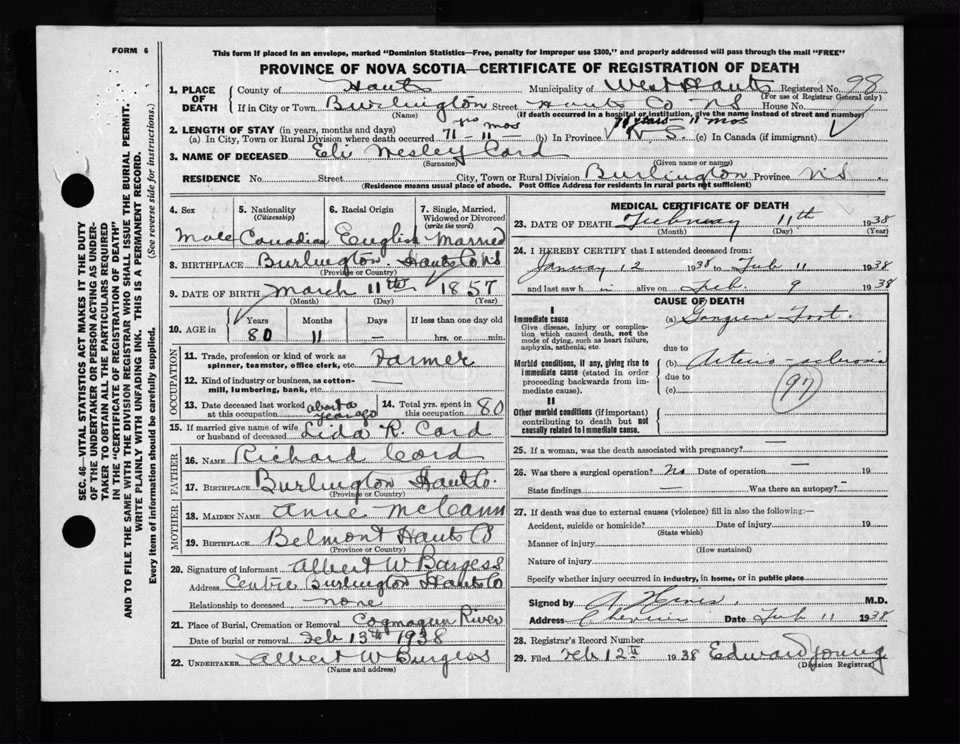 FORM 6
This form if placed in an envelope, marked "Dominion Statistics—Free, penalty for improper use $300," and properly addressed will pass through the mail "FREE"
PROVINCE OF NOVA SCOTIA—CERTIFICATE OF REGISTRATION OF DEATH
SEC. 46—VITAL STATISTICS ACT MAKES IT THE DUTY
OF THE UNDERTAKER OR PERSON ACTING AS UNDER-
TAKER TO OBTAIN ALL THE PARTICULARS REQUIRED
IN THE "CERTIFICATE OF REGISTRATION OF DEATH"
AND TO FILE THE SAME WITH THE DIVISION REGISTRAR WHO SHALL ISSUE THE BURIAL PERMIT.
WRITE PLAINLY WITH UNFADING INK. THIS IS A PERMANENT RECORD.
Every item of information should be carefully supplied. (See reverse side for instructions.)
1. PLACE OF DEATH
County of Hants Municipality of West Hants Registered No. 98
(For use of Registrar General only)
If in City or Town Burlington Street Hants Co NS House No.
(Name) (If death occurred in a hospital or institution, give the name instead of street and number)
2. LENGTH OF STAY (in years, months and days)
(a) In City, Town or Rural Division where death occurred 71 yrs - 11 - mos (b) In Province N.S. (c) In Canada (if immigrant)
3. NAME OF DECEASED Eli Wesley Card
(Surname) (Given name or names)
RESIDENCE No. Street City, Town or Rural Division Burlington Province N.S.
(Residence means usual place of abode. Post Office Address for residents in rural parts not sufficient)
4. Sex 5. Nationality (Citizenship) 6. Racial Origin 7. Single, Married, Widowed or Divorced (write the word)
Male Canadian English Married
8. BIRTHPLACE Burlington. Hants Co NS
(Province or Country)
9. DATE OF BIRTH March 11th 1857
(Month) (Day) (Year)
10. AGE in Years Months Days If less than one day old
80 11 — hrs. or min.
OCCUPATION
11. Trade, profession or kind of work as spinner, teamster, office clerk, etc. Farmer
12. Kind of industry or business, as cotton-mill, lumbering, bank, etc. —
13. Date deceased last worked at this occupation about a year ago 14. Total yrs. spent in this occupation 80
15. If married give name of wife or husband of deceased Lida R. Card
FATHER
16. NAME Richard Card
17. BIRTHPLACE Burlington Hants Co.
(Province or Country)
MOTHER
18. MAIDEN NAME Anne McCann
19. BIRTHPLACE Belmont Hants Co
(Province or Country)
20. Signature of informant Albert W Burgess
Address Centre Burlington Hants Co
Relationship to deceased none
21. Place of Burial, Cremation or Removal Cogmagun River
Date of burial or removal Feb 13th 1938
22. UNDERTAKER Albert W Burgess
(Name and address)
MEDICAL CERTIFICATE OF DEATH
23. DATE OF DEATH February 11th 1938
(Month) (Day) (Year)
24. I HEREBY CERTIFY that I attended deceased from:
January 12 1938 to Feb 11 1938
and last saw h im alive on Feb. 9 1938
CAUSE OF DEATH
I
Immediate cause
Give disease, injury or complication which caused death, not the mode of dying, such as heart failure, asphyxia, asthenia, etc.
(a) Gangrene Foot.
due to
Morbid conditions, if any, giving rise to immediate cause (stated in order proceeding backwards from immediate cause).
(b) Arterio-sclerosis
due to
(c)
97
II
Other morbid conditions (if important) contributing to death but not causally related to immediate cause.
25. If a woman, was the death associated with pregnancy? —
26. Was there a surgical operation? No Date of operation — 19
State findings — Was there an autopsy? -
27. If death was due to external causes (violence) fill in also the following:—
Accident, suicide or homicide? Date of injury 19
(State which)
Manner of injury
(How sustained)
Nature of injury
Specify whether injury occurred in industry, in home, or in public place
Signed by M.D.
Address Cheverie Date Feb 11 1938
28. Registrar's Record Number
29. Filed Feb 12th 1938 Edward Young
(Division Registrar)